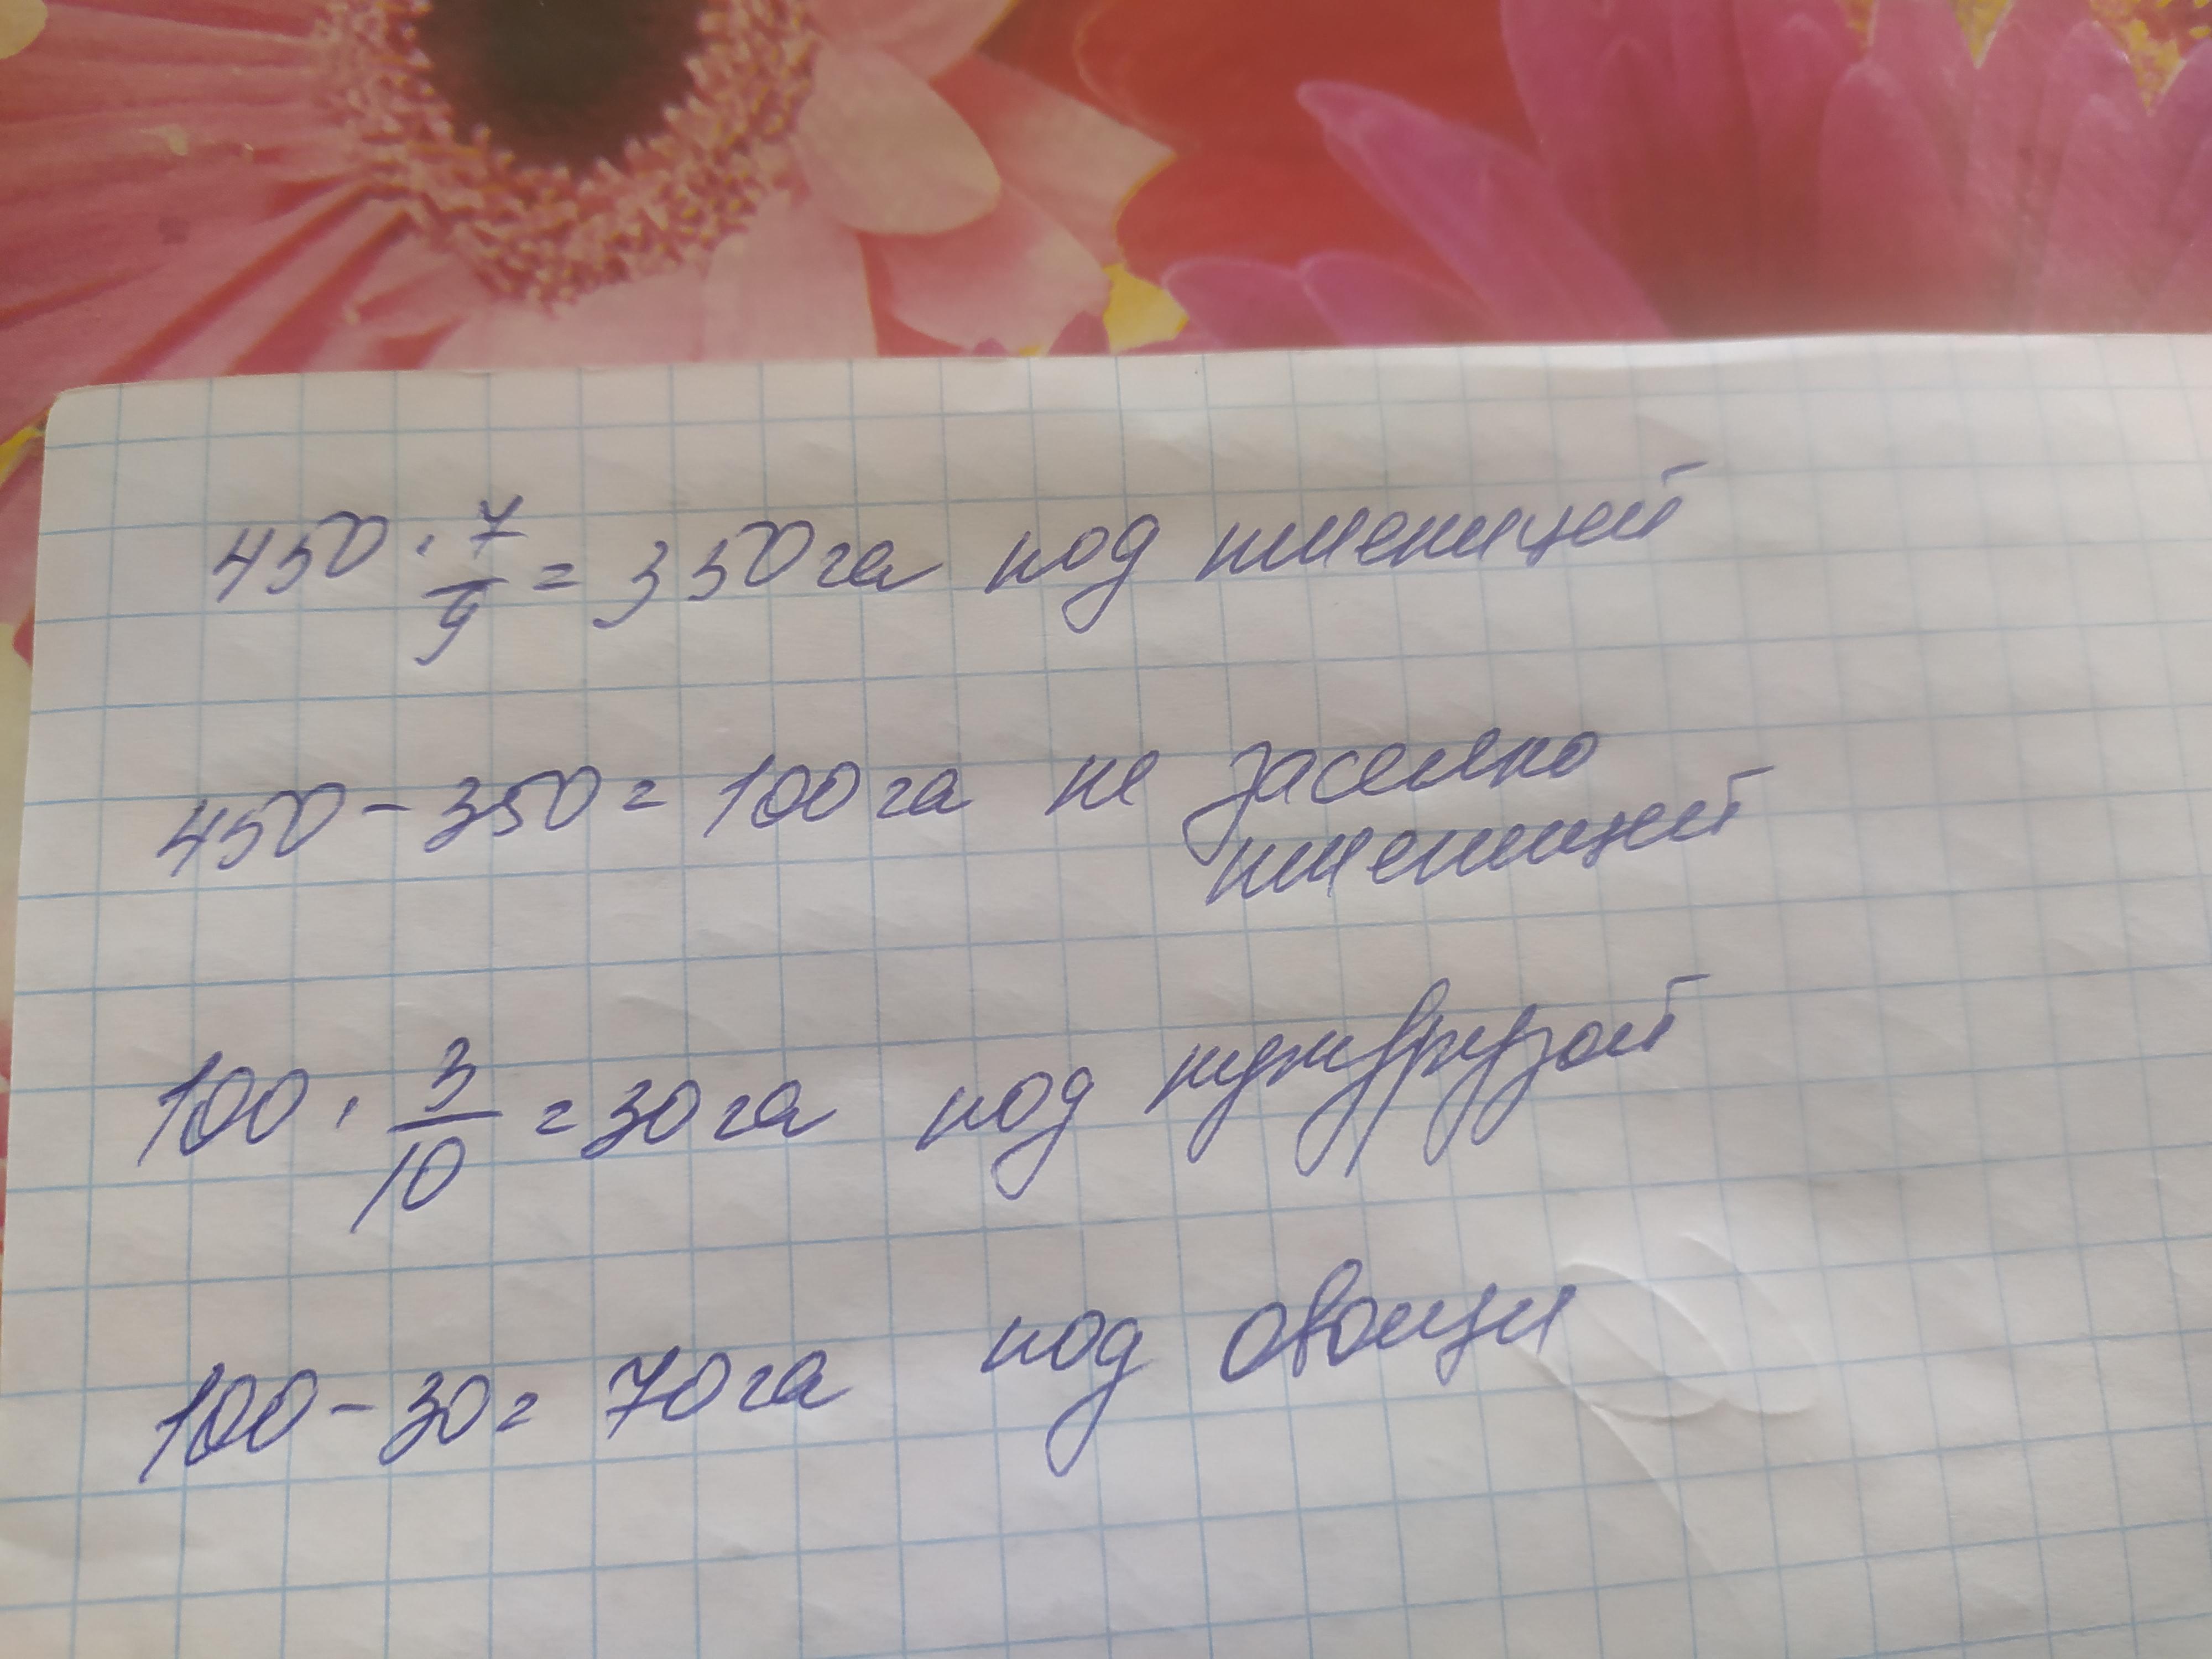 450 · 7/9 = 350 га под пшеницей
450 - 350 = 100 га не засеяно
пшеницей
100 · 3/10 = 30 га под кукурузой
100 - 30 = 70 га под овощи